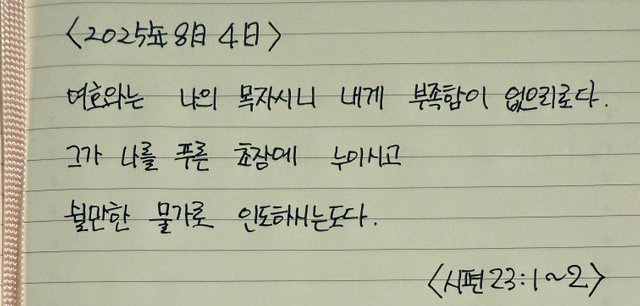 <2025年 8月 4日>
여호와는 나의 목자시니 내게 부족함이 없으리로다.
그가 나를 푸른 초장에 누이시고
쉴만한 물가로 인도하시는도다.
<시편 23:1~2>